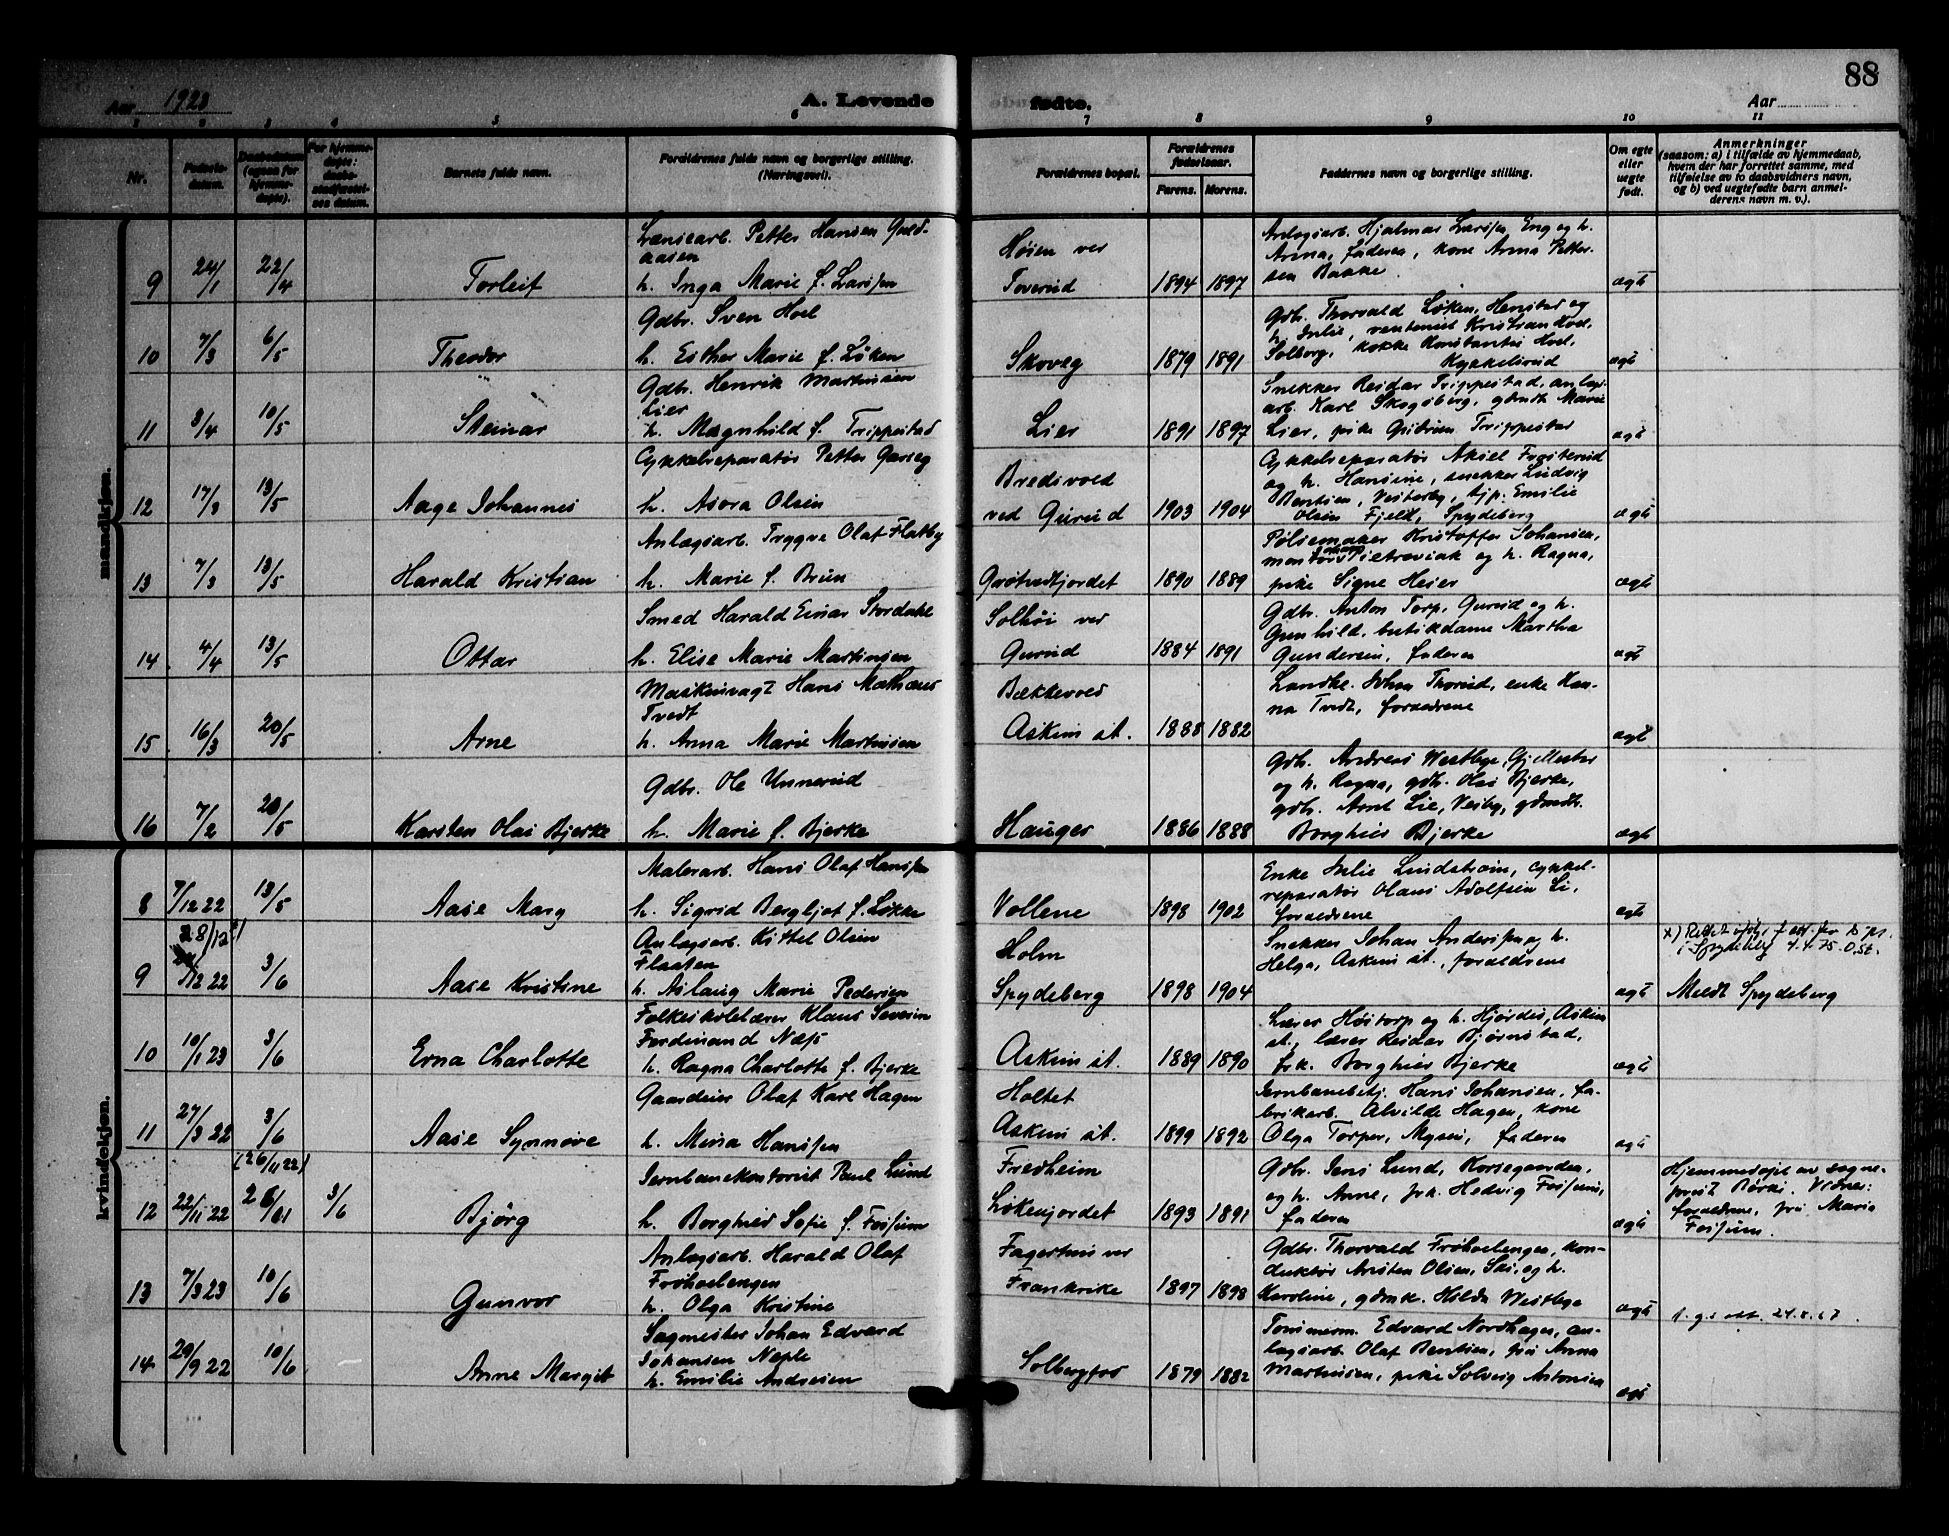 88
Aar 1923
A. Levende
fødte.
Aar
1 2 3 4 5 6 7 8 9 10 11
Nr.
Fødsels-
datum.
Daabsdatum
(ogsaa for
hjemme-
døpte).
For hjemme-
døpte:
daabs-
stadfæstel-
ses datum.
Barnets fulde navn.
Forældrenes fulde navn og borgerlige stilling.
(Næringsvei).
Forældrenes bopæl.
Forældrenes
fødselsaar.
Farens. Morens.
Faddernes navn og borgerlige stilling.
Om egte
eller
uegte
født.
Anmerkninger
(saasom: a) i tilfælde av hjemmedaab,
hvem der har forrettet samme, med
tilføielse av to daabsvidners navn,
og b) ved uegtefødte barn anmel-
derens navn m. v.).
mandkjøn.
9 24/1 22/4 Torleif
Lænsearb. Petter Hansen Guld-
aasen
h. Inga Marie f. Larsen
Høien ved
Toverud
1894 1897
Anlægsarb. Hjalmar Larsen, Eng og h.
Anna, faderen, kone Anna Petter-
sen Bakke.
egte
10 7/3 6/5 Theodor
Gdbr. Sven Hoel
h. Esther Marie f. Løken
Skoveg
1879 1891
Gdb. Thorvald Løken, Henstad og
h. Julie, rentenist Kristian Hoel,
Solberg, kokke Konstantse Hoel,
Kykkelsrud
egte
11 3/4 10/5 Steinar
Gdbr. Henrik Martinsen
Lier
h. Magnhild f. Trippestad
Lier
1891 1897
Snekker Reidar Trippestad, anlægs-
arb. Karl Skogsberg, gdmdt. Marie
Lier, pike Gudrun Trippestad
egte
12 17/3 13/5 Aage Johannes
Cykkelreparatør Petter Garseg
h. Asora Olsen
Bredsvold
ved Gurud
1903 1904
Cykkelreparatør Aksel Frøsterud
og h. Hansine, snekker Ludvig
Bentsen, Vesterby, tjp. Emilie
Olsen Fjeld, Spydeberg
egte
13 7/3 13/5 Harald Kristian
Anlægsarb. Trygve Olaf Flatby
h. Marie f. Brun
Grøtvedtjordet
1890 1889
Pølsemaker Kristoffer Johansen,
montør Pietraviak og h. Ragna,
pike Signe Heier
egte
14 4/4 13/5 Ottar
Smed Harald Einar Stordahl
h. Elise Marie Martinsen
Solhøi ved
Gurud
1884 1891
Gdbr. Anton Torp, Gurud og h.
Gunhild, butikdame Martha
Gundersen, faderen
egte
15 16/3 20/5 Arne
Maskinvagt Hans Mathæus
Tvedt
h. Anna Marie Martinsen
Bækkevold
Askim st.
1888 1882
Landhl. Johan Thorud, enke Han-
na Tvedt, forældrene
egte
16 7/2 20/5 Karsten Olai Bjerke
Gdbr. Ole Unnerud
h. Marie f. Bjerke
Hauger
1886 1888
Gdb. Andreas Westbye, Gjellestad
og h. Ragna, gdb. Olai Bjerke,
gdb. Arnt Lie, Vesby, gdmdt.
Borghild Bjerke
egte
kvindekjøn.
8 7/12 22 13/5 Aase Mary
Malerarb. Hans Olaf Hansen
h. Sigrid Bergljot f. Løkke
Vollene
1898 1902
Enke Julie Lindstrøm, cykkel-
reparatør Olaus Adolfsen Li,
forældrene
egte
9 28/12 x) 12 22 3/6 Aase Kristine
Anlægsarb. Kittel Olsen
Flaaten
h. Aslaug Marie Pedersen
Holm
Spydeberg
1898 1904
Snekker Johan Andersen og h.
Helga, Askim st., forældrene
egte
x) Rettet ifølge f. att. fra
i Spydeberg 4.4.75. O.St.
Meldt Spydeberg
10 10/1 23 3/6 Erna Charlotte
Folkeskolelærer Klaus Severin
Ferdinand Næss
h. Ragna Charlotte f. Bjerke
Askim st.
1889 1890
Lærer Høitorp og h. Hjørdis, Askim
st., lærer Reidar Bjørnstad,
frk. Borghild Bjerke
egte
11 27/3 22 3/6 Aase Synnøve
Gaardeier Olaf Karl Hagen
h. Mina Hansen
Holtet
Askim st.
1899 1892
Jernbanebetj. Hans Johansen, fa-
brikarb. Alvilde Hagen, kone
Olga Torper, Mysen, faderen
egte
12 22/11 22 (26/11 22) 26/01 3/6 Bjørg
Jernbanekontorist Paul Lund
h. Borghild Sofie f. Fossum
Fredheim
Løkenjordet
1893 1891
Gdb. Jens Lund, Korsegaarden,
og h. Anne, frk. Hedvig Fossum,
faderen
egte
Hjemmedøpt av sogne-
prest Børki. Vidner:
forældrene, fru Maria
Fossum.
13 7/3 23 10/6 Gunvor
Anlægsarb. Harald Olaf
Frøhoelengen
h. Olga Kristine
Fagertun ved
Frankrike
1897 1898
Gdbr. Thorvald Frøhoelengen, kon-
duktør Aristen Olsen, Ski, og h.
Karoline, gdmk. Hilda Westbye
egte
14 29/9 22 10/6 Anne Margit
Sagmester Johan Edvard
Johansen Neple
h. Emilie Andresen
Solbergfos
1879 1882
Tømmerm. Edvard Nordhagen, an-
lægsarb. Olaf Bentsen, fru Anna
Martinsen, pike Solveig Antonsen
egte